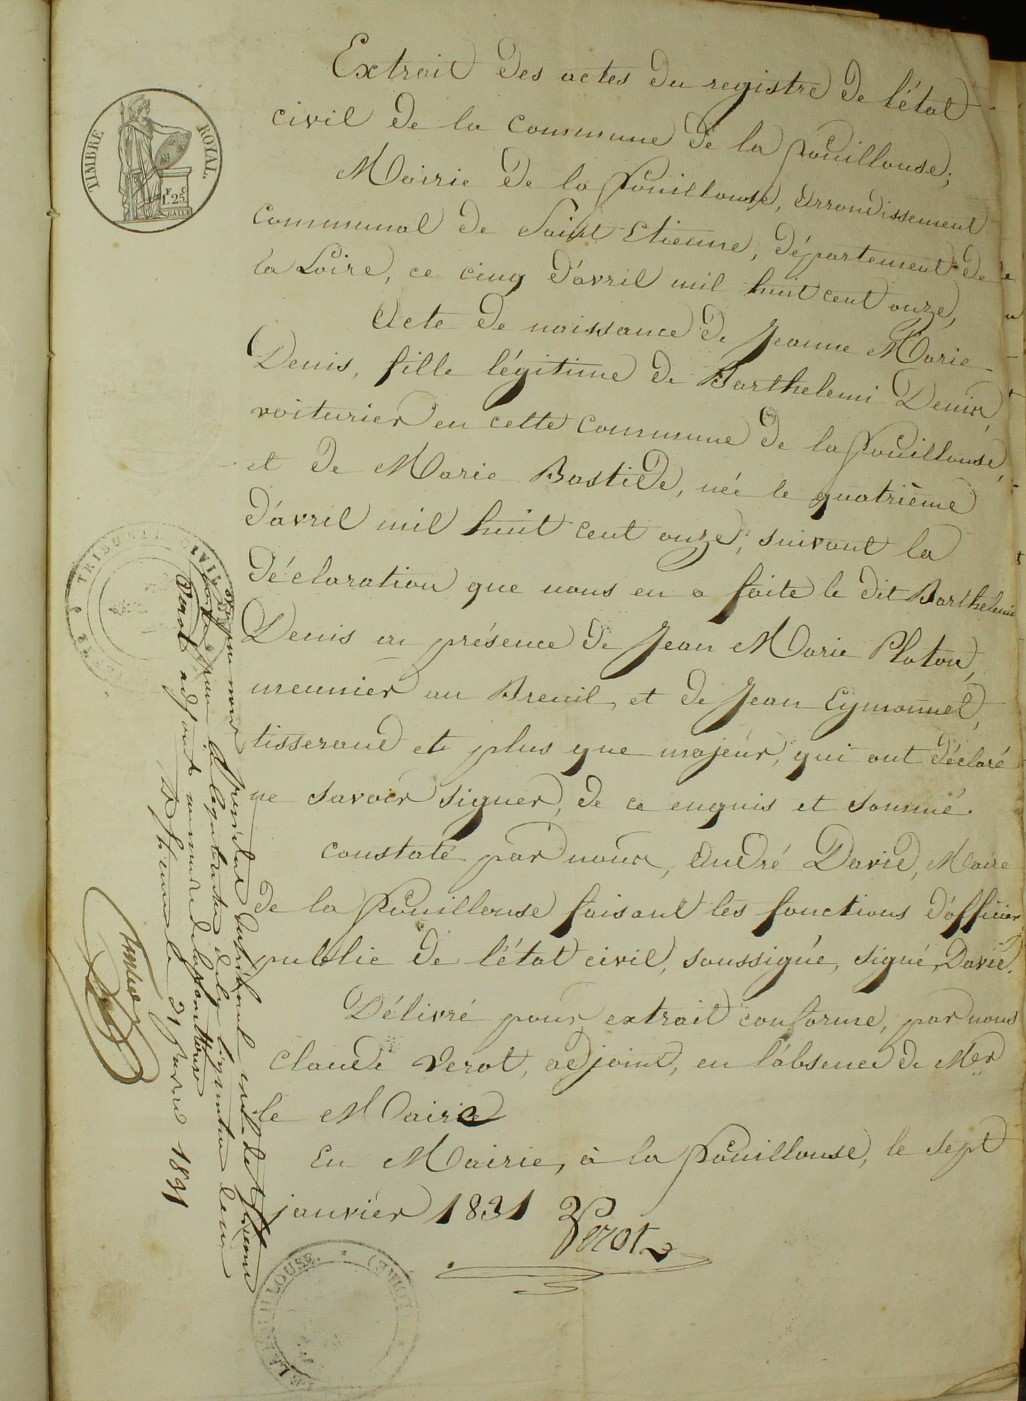 TIMBRE ROYAL.
1F. 25c
Extrait des actes du registre de l'état
civil de la commune de la fouillouse;
Mairie de la fouillouse, Arrondissement
communal de Saint Etienne, département de
la Loire, ce cinq d'avril mil huit cent onze,
Acte de naissance de Jeanne Marie
Denis, fille légitime de Barthelemi Denis,
voiturier en cette commune de la fouillouse,
et de Marie Bastide, née le quatrième
d'avril mil huit cent onze, suivant la
déclaration que nous en a faite le dit Barthelemi
Denis en présence de Jean Marie Platon,
meunier au Breuil, et de Jean Eymonnel,
tisserand et plus que majeur, qui ont déclaré
ne savoir signer, de ce enquis et sommé.
constaté par nous, André David, Maire
de la fouillouse faisant les fonctions d'officier
public de l'état civil, soussigné, signé, David.
Délivré pour extrait conforme, par nous
Claude Verot, adjoint, en l'absence de Mer
le Maire
En Mairie, à la fouillouse, le sept
janvier 1831 Verot
Vu par nous Président du tribunal civil de St Etienne
pour légalisation de la signature de Mr
Verot adjoint au maire de la fouillouse
St Etienne le 31 janvier 1831
TRIBUNAL CIVIL
LA FOUILLOUSE.